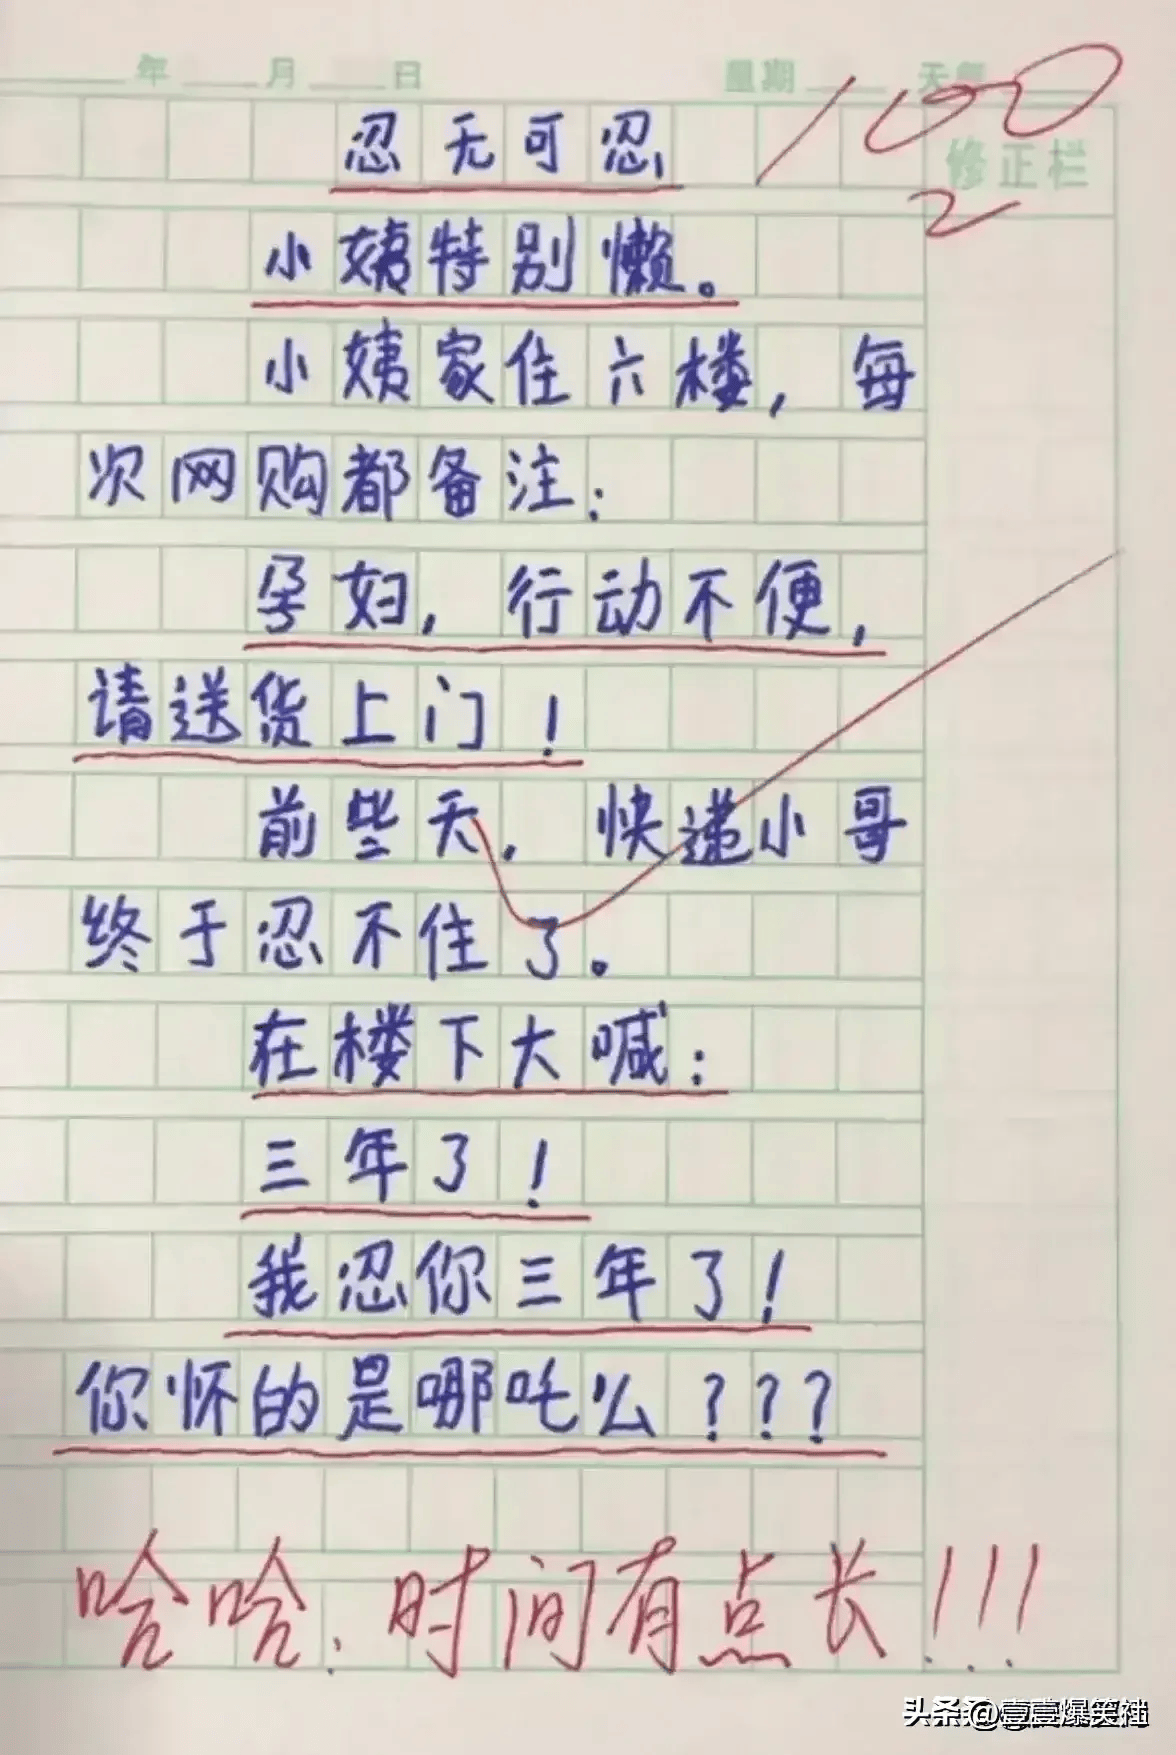 年 月 日 星期 天气
100
忍无可忍
修正栏
2
小姨特别懒。
小姨家住六楼，每
次网购都备注：
孕妇，行动不便，
请送货上门！
前些天，快递小哥
终于忍不住了。
在楼下大喊：
三年了！
我忍你三年了！
你怀的是哪吒么？？？
哈哈．时间有点长！！！
头条 @壹壹爆笑社